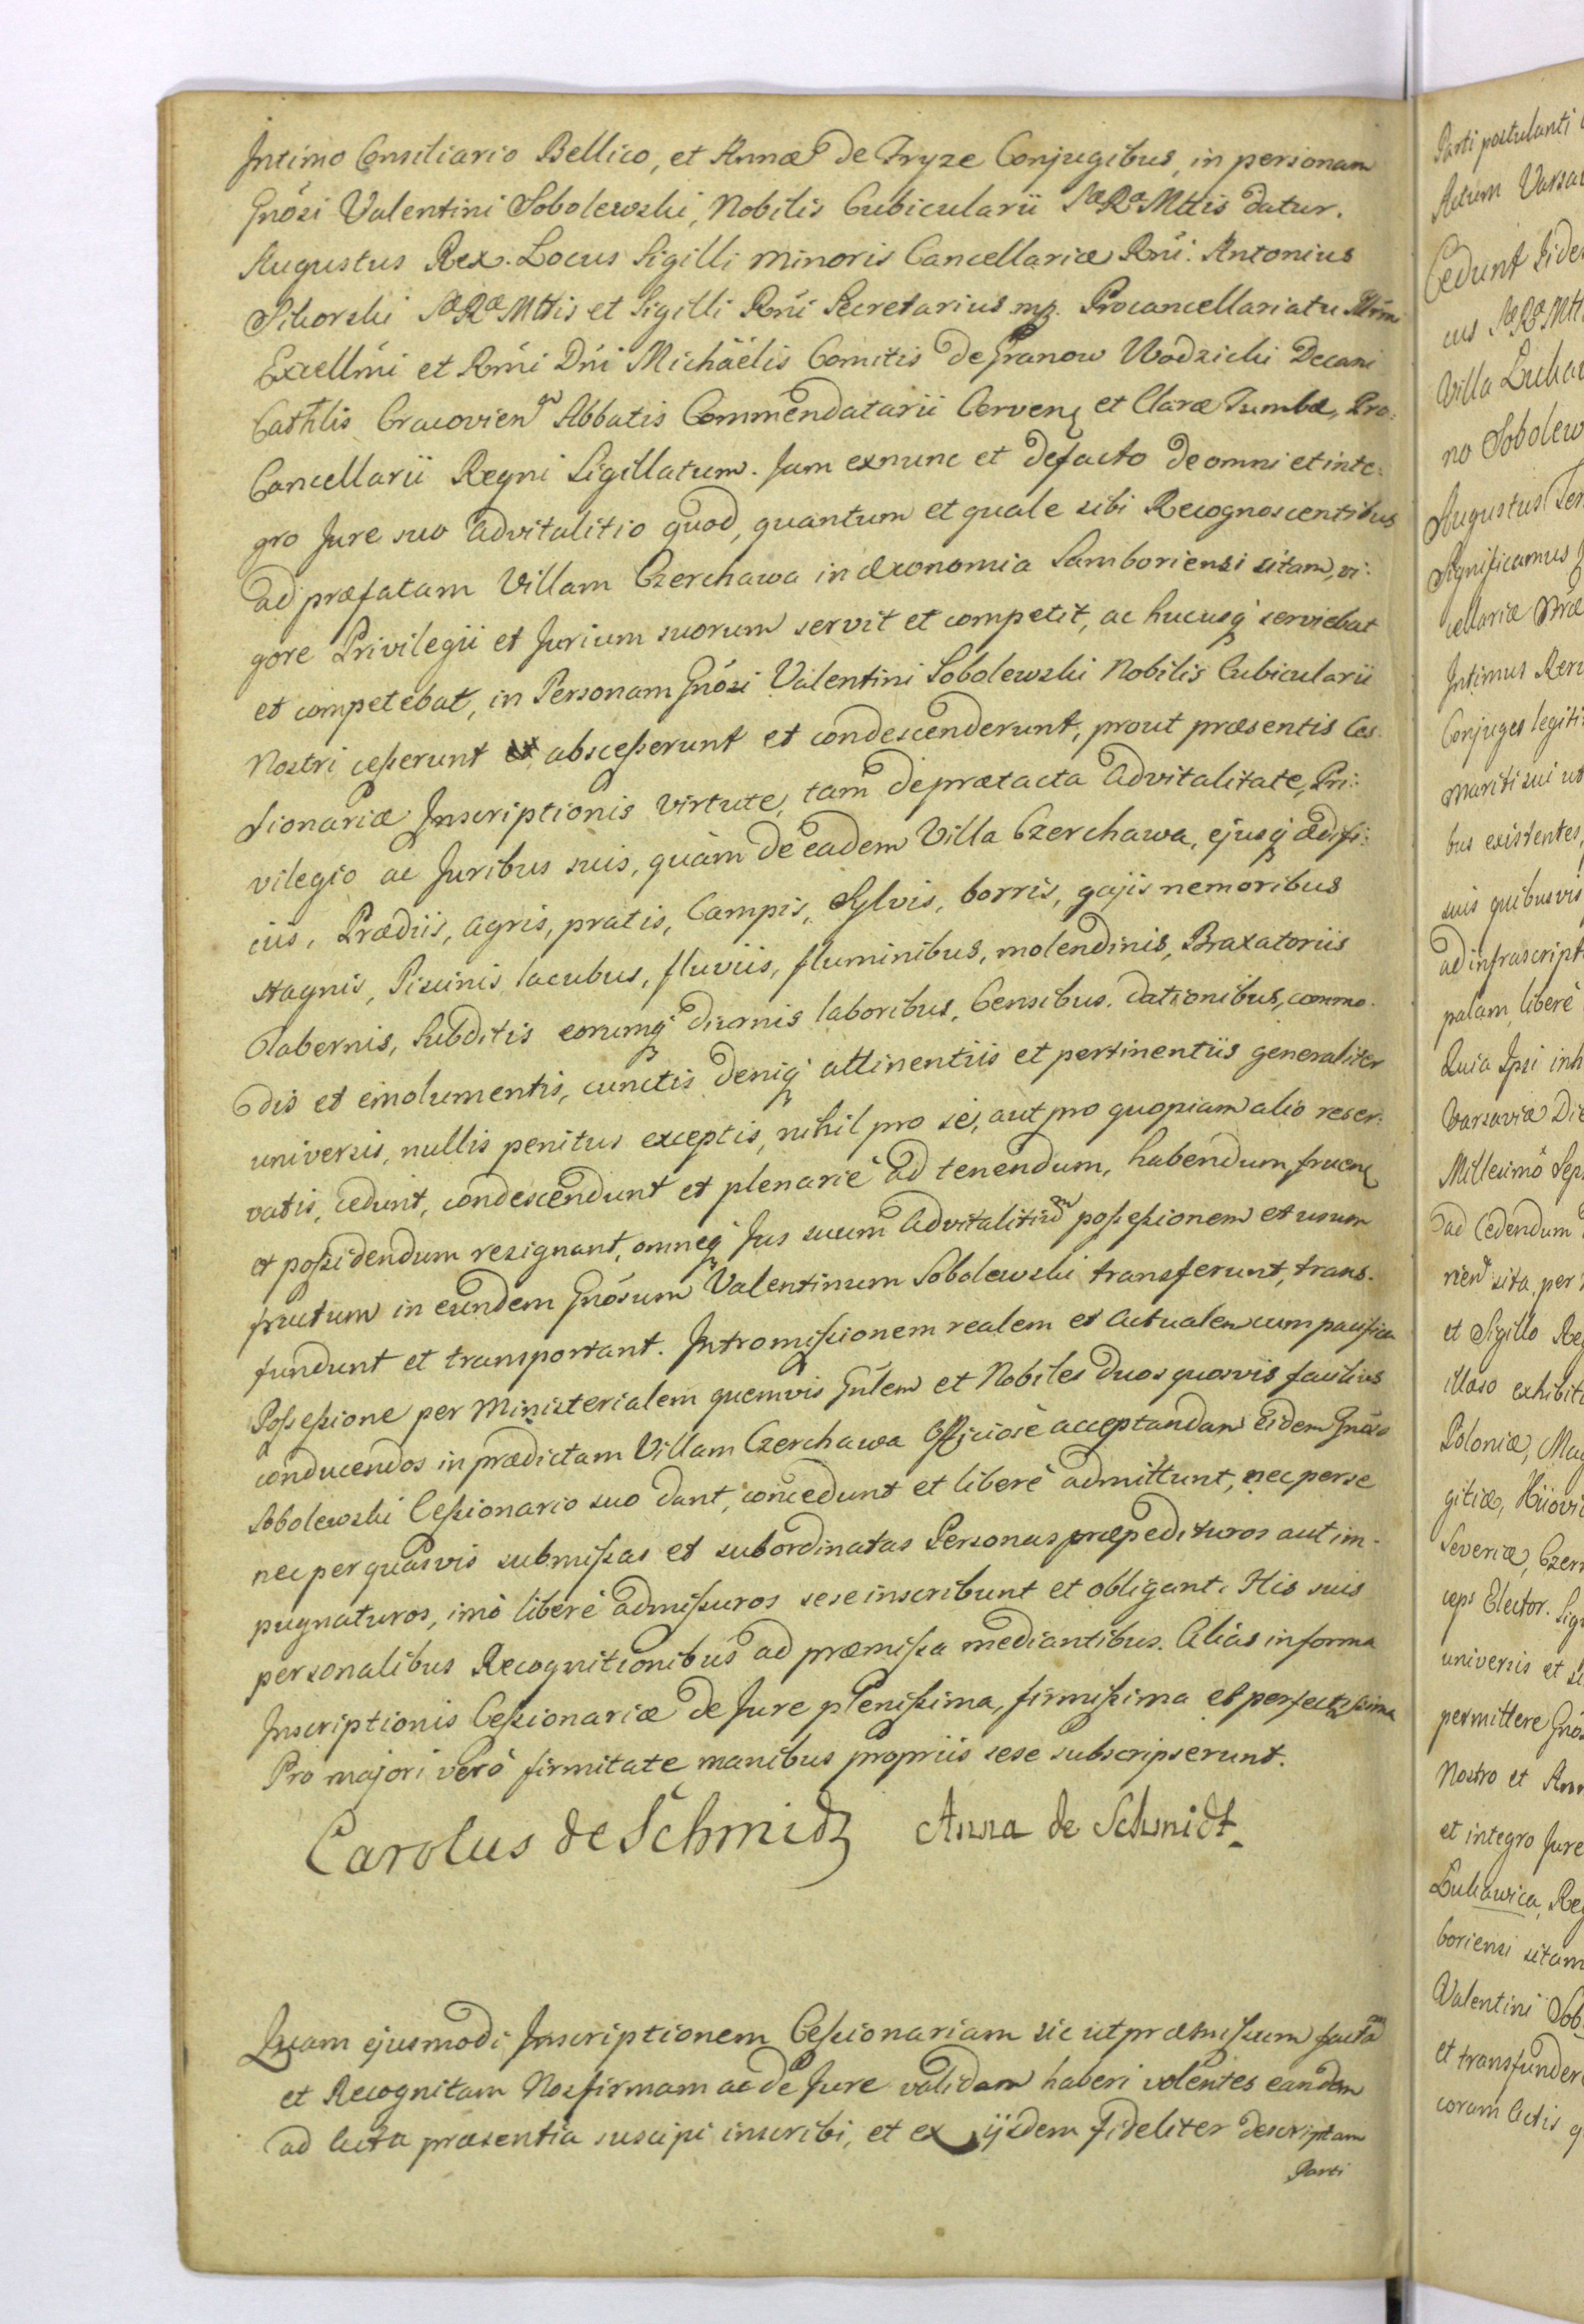 Intimo Consiliario Bellico, et Annæ de Fryze Conjugibus, in personam
Gnosi Valentini Sobolewski, Nobilis Cubicularii SæRæMttis datur.
Augustus Rex. Locus Sigilli minoris Cancellariæ Rni. Antonius
Sikorski SæRæMttis et Sigilli Rni Secretarius mp. Procancellariatu Illrmi
Excellmi et Rmi Dni Michäelis Comitis de Granow Wodzicki Decani
Cathlis Cracovien Abbatis Commendatarii Cerven et Claræ Tumbæ, Pro:
Cancellarii Regni Sigillatum. Jam exnunc et defacto de omni et inte:
gro Jure suo advitalitio quod, quantum et quale sibi Recognoscentibus
ad præfatam Villam Czerchawa in œconomia Samboriensi sitam, vi:
gore Privilegii et Jurium suorum servit et competit, ac hucusq serviebat
et competebat, in Personam Gnosi Valentini Sobolewski Nobilis Cubicularii
Nostri cesserunt abscesserunt et condescenderunt, prout præsentis Ces:
sionariæ Inscriptionis virtute, tam de prætacta advitalitate, Pri:
vilegio ac Juribus suis, quàm de eadem Villa Czerchawa, ejusq ædifi:
ciis, Prædiis, agris, pratis, Campis, Sylvis, borris, gajis nemoribus
stagnis, Piscinis lacubus, fluviis, fluminibus, molendinis, Braxatoriis
Tabernis, Subditis eorumq diurnis laboribus, Censibus, dationibus, commo:
dis et emolumentis, cunctis deniq attinentiis et pertinentiis generaliter
universis, nullis penitus exceptis, nihil pro se, aut pro quopiam alio reser:
vatis, cedunt, condescendunt et plenariè ad tenendum, habendum fruen
et possidendum resignant, omneq Jus suum advitalitium possessionem et usum
fructum in eundem Gnosum Valentinum Sobolewski transferunt, trans:
fundunt et transportant. Intromissionem realem et actualem cum pacifica
Possessione per Ministerialem quemvis Gnlem et Nobiles duos quosvis facilius
conducendos in prædictam Villam Czerchawa officiosè acceptandam Eidem Gnoso
Sobolewski Cessionario suo dant, concedunt et liberè admittunt, nec per se
nec per quasvis submissas et subordinatas Personas præpedituros aut im:
pugnaturos, imò liberè admissuros sese inscribunt et obligant. His suis
personalibus Recognitionibus ad præmissa mediantibus. Aliàs in forma
Inscriptionis Cessionariæ de Jure plenissima, firmissima et perfectissima
Pro majori verò firmitate manibus propriis sese subscripserunt.
Carolus de Schmidt Anna de Schmidt
Quam ejusmodi Inscriptionem Cessionariam sic ut præmissum factam
et Recognitam Nos firmam ac de Jure validam haberi volentes eandem
ad Acta præsentia suscipi inscribi, et ex ijsdem fideliter descriptam
Parti
Parti postulanti
Actum Varsav
Cedunt Iidem
cus SæRæMtt
Villa Lukaw
no Sobolew
Augustus Ter
Significamus
cellariæ Præ
Intimus Reru
Conjuges legiti
mariti sui ut
bus existentes,
suis quibusvis
ad infrascript
palam liberè
Quia Ipsi inh
Varsaviæ Die
Millesimô Sep
ad Cedendum
rien sita per
et Sigillo Reg
illæso exhibit
Poloniæ, Mag
gitiæ, Kijovi
Severiæ, Czern
ceps Elector. Sig
universis et si
permittere Gnos
Nostro et Ann
et integro Jure
Lukawica, Reg
boriensi sitam
Valentini Sob
et transfunder
coram Actis q